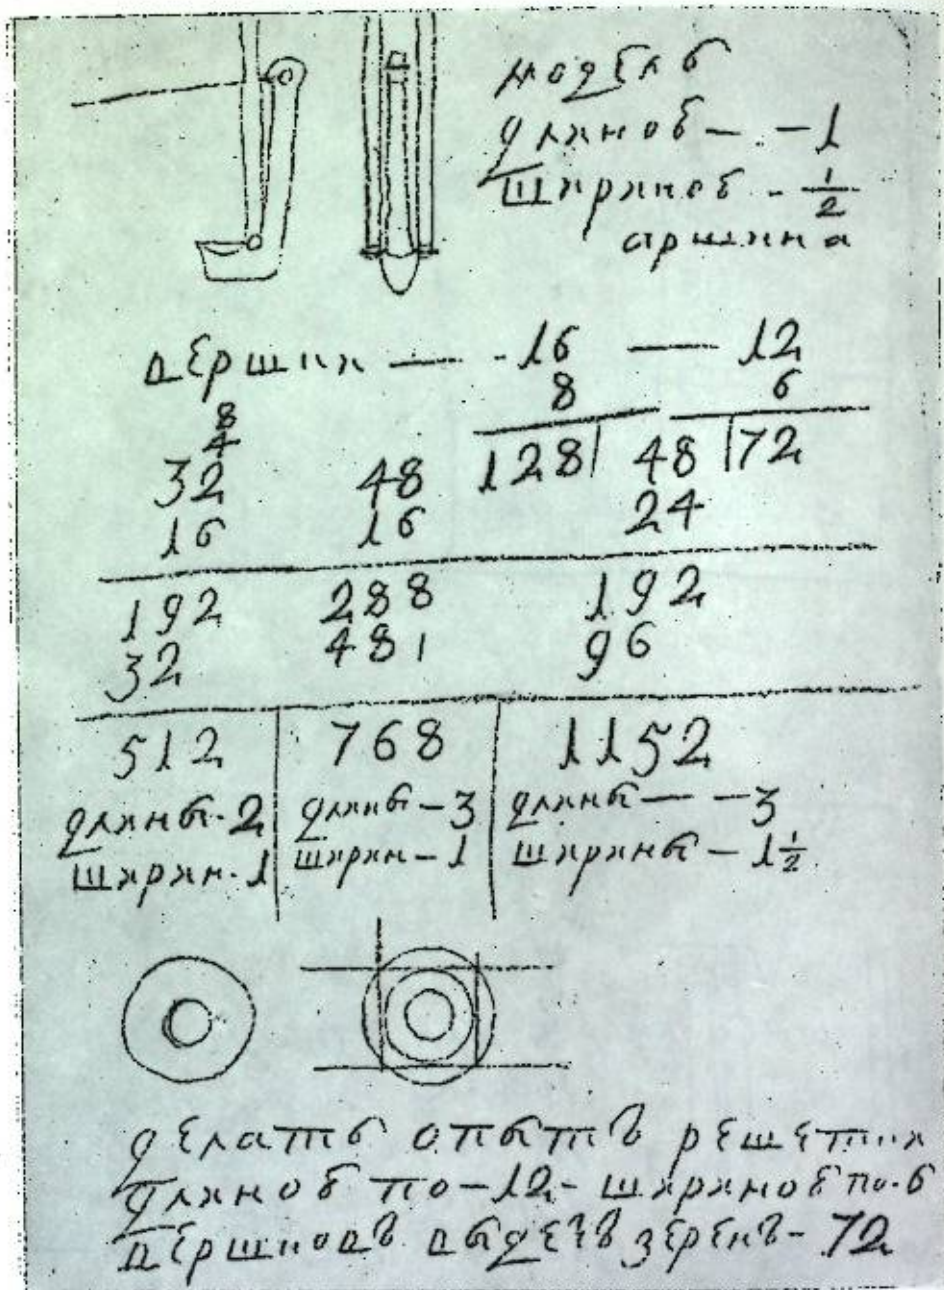 моделъ
длиноб — - 1
шириноб - 1/2
аршина
вершик — - 16 — 12
8 6
8
4
32 48 128 48 72
16 16 24
192 288 192
32 481 96
512 768 1152
длины - 2 длины - 3 длины — - 3
ширин - 1 ширин - 1 ширины - 1 1/2
делать опытъ решетки
длиноб по - 12 - шириноб по - 6
вершновъ зеренъ - 72